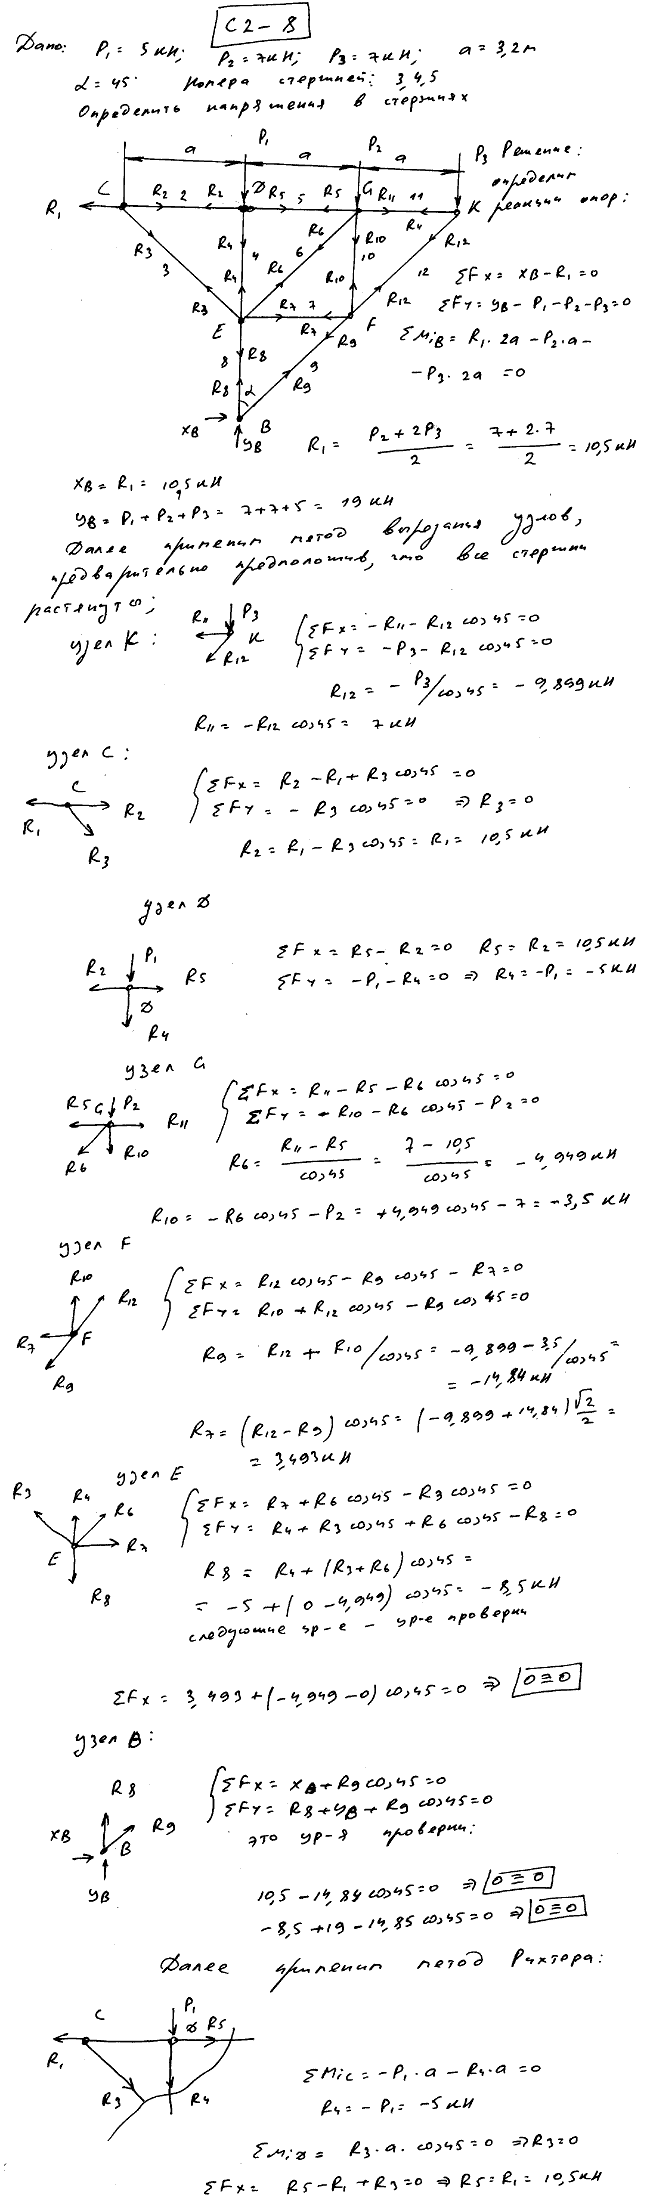 С2-8
Дано: P1 = 5 кН; P2 = 7 кН; P3 = 7 кН; a = 3,2 м
α = 45° Номера стержней: 3,4,5
Определить напряжения в стержнях
a a a
P1 P2 P3
Решение:
определим
реакции опор:
R1 C R2 2 R2 D R5 5 R5 G R11 11 R4 K
R3 3 R3 R4 4 R4 R6 6 R6 R10 10 R10 R12 12 R12
E R7 7 R7 F
R8 8 R8 R9 9 R9
α
XB B
YB
ΣFx = XB - R1 = 0
ΣFY = YB - P1 - P2 - P3 = 0
ΣMiB = R1·2a - P2·a -
- P3·2a = 0
R1 = (P2 + 2P3)/2 = (7 + 2·7)/2 = 10,5 кН
XB = R1 = 10,5 кН
YB = P1 + P2 + P3 = 7+7+5 = 19 кН
Далее применим метод вырезания узлов,
предварительно предположив, что все стержни
растянуты;
узел K:
R11 P3 K R12
ΣFx = -R11 - R12 cos45 = 0
ΣFY = -P3 - R12 cos45 = 0
R12 = -P3/cos45 = -9,899 кН
R11 = -R12 cos45 = 7 кН
узел C:
C R1 R2 R3
ΣFx = R2 - R1 + R3 cos45 = 0
ΣFY = -R3 cos45 = 0 ⇒ R3 = 0
R2 = R1 - R3 cos45 = R1 = 10,5 кН
узел D
R2 P1 R5 D R4
ΣFx = R5 - R2 = 0 R5 = R2 = 10,5 кН
ΣFY = -P1 - R4 = 0 ⇒ R4 = -P1 = -5 кН
узел G
R5 G P2 R11 R6 R10
ΣFx = R11 - R5 - R6 cos45 = 0
ΣFY = -R10 - R6 cos45 - P2 = 0
R6 = (R11 - R5)/cos45 = (7 - 10,5)/cos45 = -4,949 кН
R10 = -R6 cos45 - P2 = +4,949 cos45 - 7 = -3,5 кН
узел F
R10 R12 R7 F R9
ΣFx = R12 cos45 - R9 cos45 - R7 = 0
ΣFY = R10 + R12 cos45 - R9 cos45 = 0
R9 = R12 + R10/cos45 = -9,899 - 3,5/cos45 =
= -14,84 кН
R7 = (R12 - R9) cos45 = (-9,899 + 14,84) √2/2 =
= 3,493 кН
узел E
R3 R4 R6 E R7 R8
ΣFx = R7 + R6 cos45 - R3 cos45 = 0
ΣFY = R4 + R3 cos45 + R6 cos45 - R8 = 0
R8 = R4 + (R3 + R6) cos45 =
= -5 + (0 - 4,949) cos45 = -8,5 кН
следующие ур-е - ур-е проверки
ΣFx = 3,493 + (-4,949 - 0) cos45 = 0 ⇒ 0≡0
узел B:
R8 R9 XB B YB
ΣFx = XB + R9 cos45 = 0
ΣFY = R8 + YB + R9 cos45 = 0
это ур-я проверки:
10,5 - 14,84 cos45 = 0 ⇒ 0≡0
-8,5 + 19 - 14,85 cos45 = 0 ⇒ 0≡0
Далее применим метод Риттера:
C P1 D R5 R1 R3 R4
ΣMiC = -P1·a - R4·a = 0
R4 = -P1 = -5 кН
ΣMiD = R3·a·cos45 = 0 ⇒ R3 = 0
ΣFx = R5 - R1 + R3 = 0 ⇒ R5 = R1 = 10,5 кН